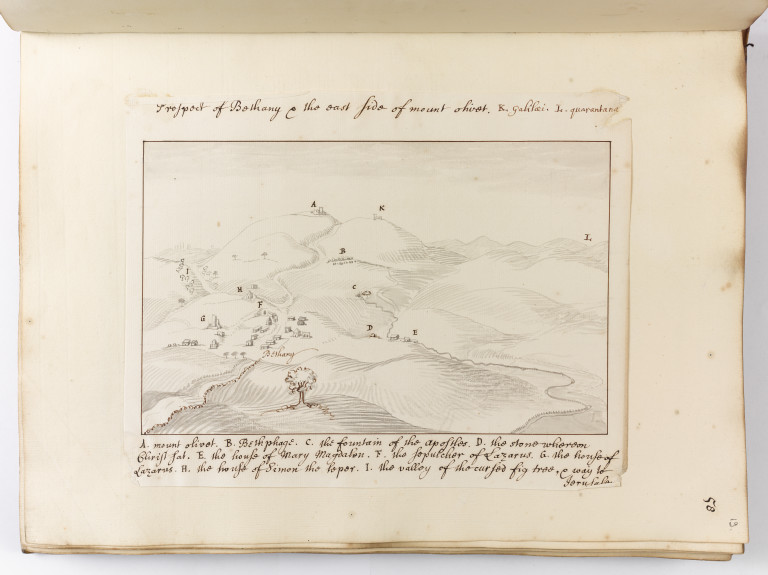 Prospect of Bethany & the east side of mount olivet. K. Galilæi. L. quarantana
A
K
L
B
I
H
C
F
G
D
E
Bethany
A. mount olivet. B. Bethphage. C. the fountain of the Apostles. D. the stone whereon
Christ sat. E. the house of Mary Magdalen. F. the sepulcher of Lazarus. G. the house of
Lazarus. H. the house of Simon the leper. I. the valley of the cursed fig tree, & way to
58